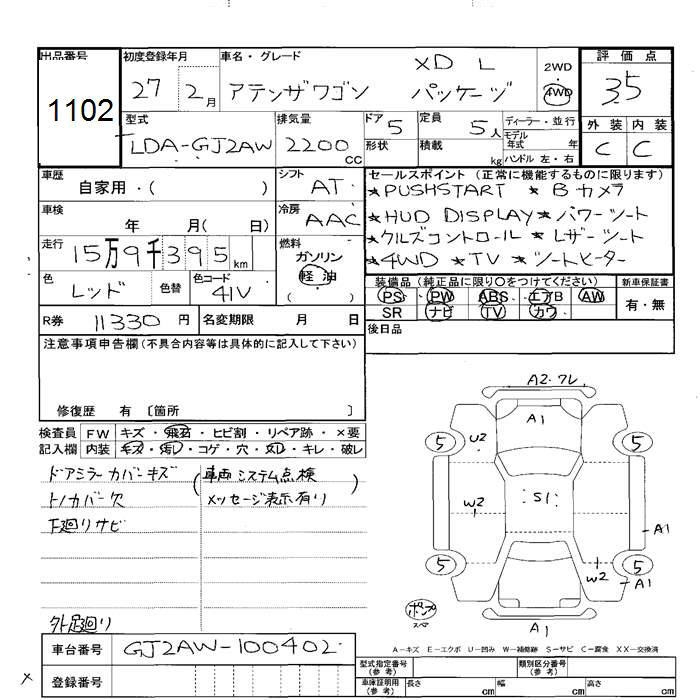 出品番号
1102
初度登録年月
27 2月
車名・グレード
アテンザワゴン XD L パッケージ
2WD
・
4WD
評価点
3.5
外装 内装
C C
型式
LDA-GJ2AW
排気量
2200 CC
ドア 5
形状
定員 5人
積載 kg
ディーラー・並行
モデル
年式 年
ハンドル 左・右
車歴
自家用・( )
シフト
AT
セールスポイント (正常に機能するものに限ります)
★PUSHSTART ★Bカメラ
★HUD DISPLAY★パワーシート
★クルズコントロール★レザーシート
★4WD ★TV ★シートヒーター
車検
年 月( 日)
冷房
AAC
走行
15万9千395km
燃料
ガソリン
軽油
( )
色
レッド
色替
色コード
41V
装備品 (純正品に限り○をつけてください)
PS・PW・ABS・エアB・AW
SR・ナビ・TV・カワ・
新車保証書
有・無
R券 11330円
名変期限 月 日
後日品
注意事項申告欄(不具合内容等は具体的に記入して下さい)
修復歴 有 〔箇所 〕
検査員 FW キズ・飛石・ヒビ割・リペア跡・×要
記入欄 内装 キズ・汚レ・コゲ・穴・凹レ・キレ・破レ
ドアミラーカバーキズ
(車両システム点検
トノカバー欠
メッセージ表示有り)
下廻りサビ
外足廻り
A2.ワレ
A1
5 U2 5
W2 S1
A1
5 5
W2 A1
ポンプ
スペ
A1
A-キズ E-エクボ U-凹み W-補修跡 S-サビ C-腐食 XX-交換済
車台番号 GJ2AW-100402
登録番号
型式指定番号
(参考)
類別区分番号
(参考)
車庫証明用
(参考)
長さ cm 幅 cm 高さ cm